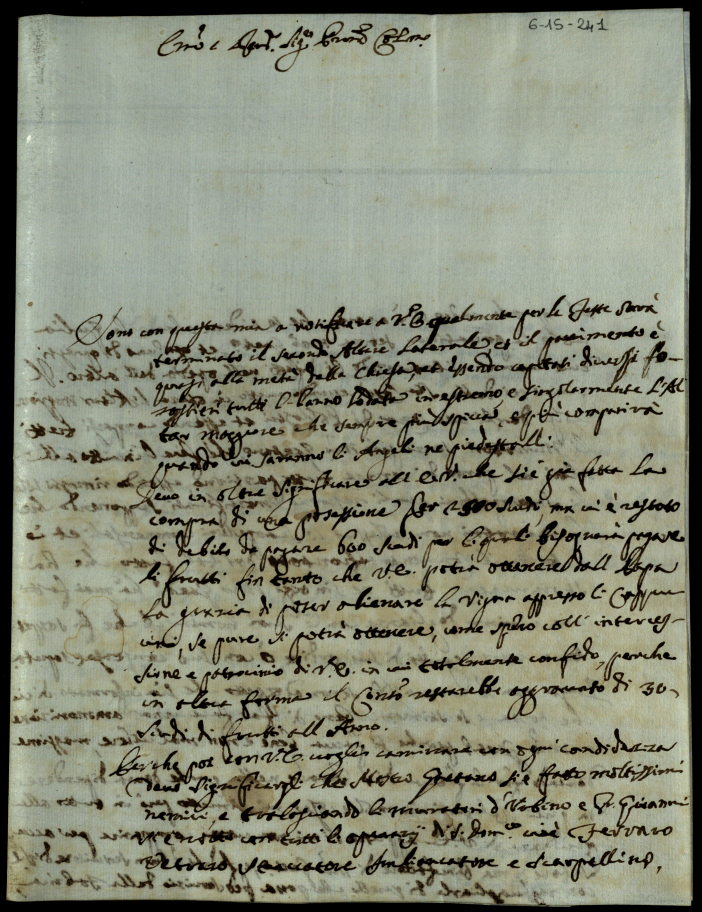 6-15-241
Sig.
Sono con questa mia a notificare a V. E. qualmente per le Feste sarà
terminato il secondo Altare Laterale, et il pavimento è
quasi alla metà della Chiesa, et essendo capitati diversi fo-
rastieri tutti l'hanno lodata in estremo e singolarmente l'Al
tar maggiore che sempre più spicca, e più comparirà
quando vi saranno li Angeli ne piedestalli.
Devo in oltre significare all' E. V. che si è già fatta la
compra di una posessione per scudi, ma vi è restato
di debito da pagare 600 scudi per li quali bisognerà pagare
li frutti fin tanto che V. E. potrà ottenere dall Papa
la grazia di poter alienare la vigna appresso li Cappu
cini, se pure si potrà ottenere, come spero coll' interces-
sione e patrocinio di V. E. in cui totalmente confido, perche
in altra forma il restarebbe aggravato di 30
scudi di frutti all Anno.
Perche poi con V. E. voglio caminare con ogni candidezza
devo significargli che Mastro Gaetano si è fatto moltissimi
nemici, e tralasciando li muratori d'Urbino e Giovanni
con tutti li di S. cioè Ferraro
Vetraro Stuccatore Imbiancatore e Scarpellino,